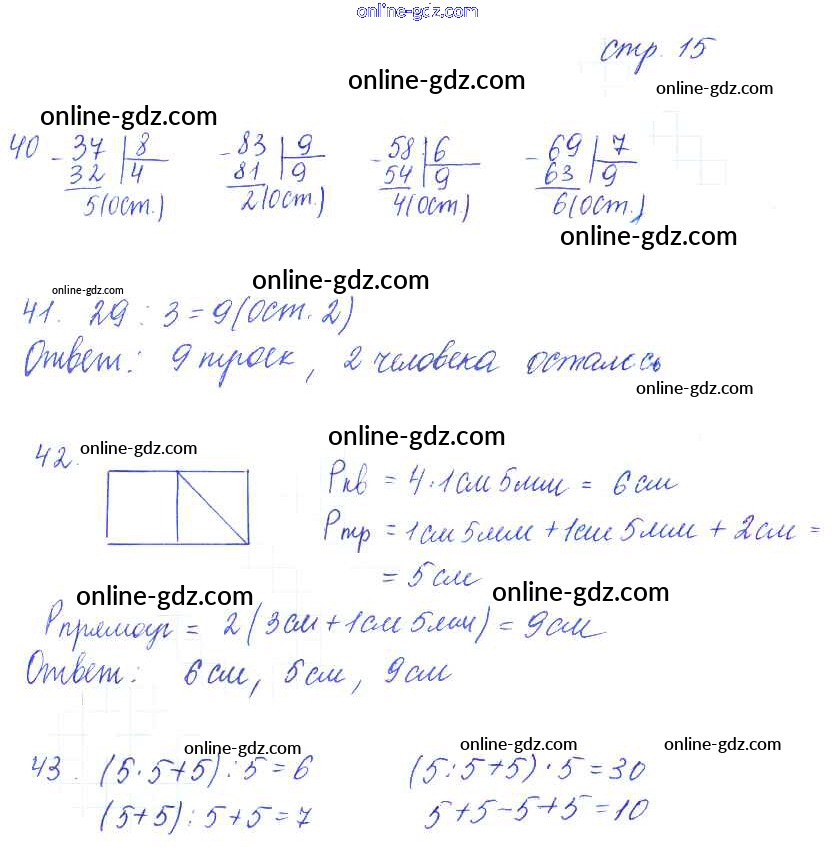 online-gdz.com
стр. 15
online-gdz.com
online-gdz.com
online-gdz.com
40 -37 | 8 -83 | 9 -58 | 6 -69 | 7
32 | 4 81 | 9 54 | 9 63 | 9
5(Ост.) 2(Ост.) 4(Ост.) 6(Ост.)
online-gdz.com
online-gdz.com
online-gdz.com
41. 29 : 3 = 9(Ост. 2)
Ответ: 9 троек, 2 человека осталось
online-gdz.com
online-gdz.com
42. online-gdz.com
Pкв = 4·1см 5мм = 6см
Pтр = 1см 5мм + 1см 5мм + 2см =
= 5см
online-gdz.com
online-gdz.com
Pпрямоуг = 2(3см + 1см 5мм) = 9см
Ответ: 6см, 5см, 9см
online-gdz.com
online-gdz.com
online-gdz.com
43. (5·5+5):5=6 (5:5+5)·5=30
(5+5):5+5=7 5+5-5+5=10